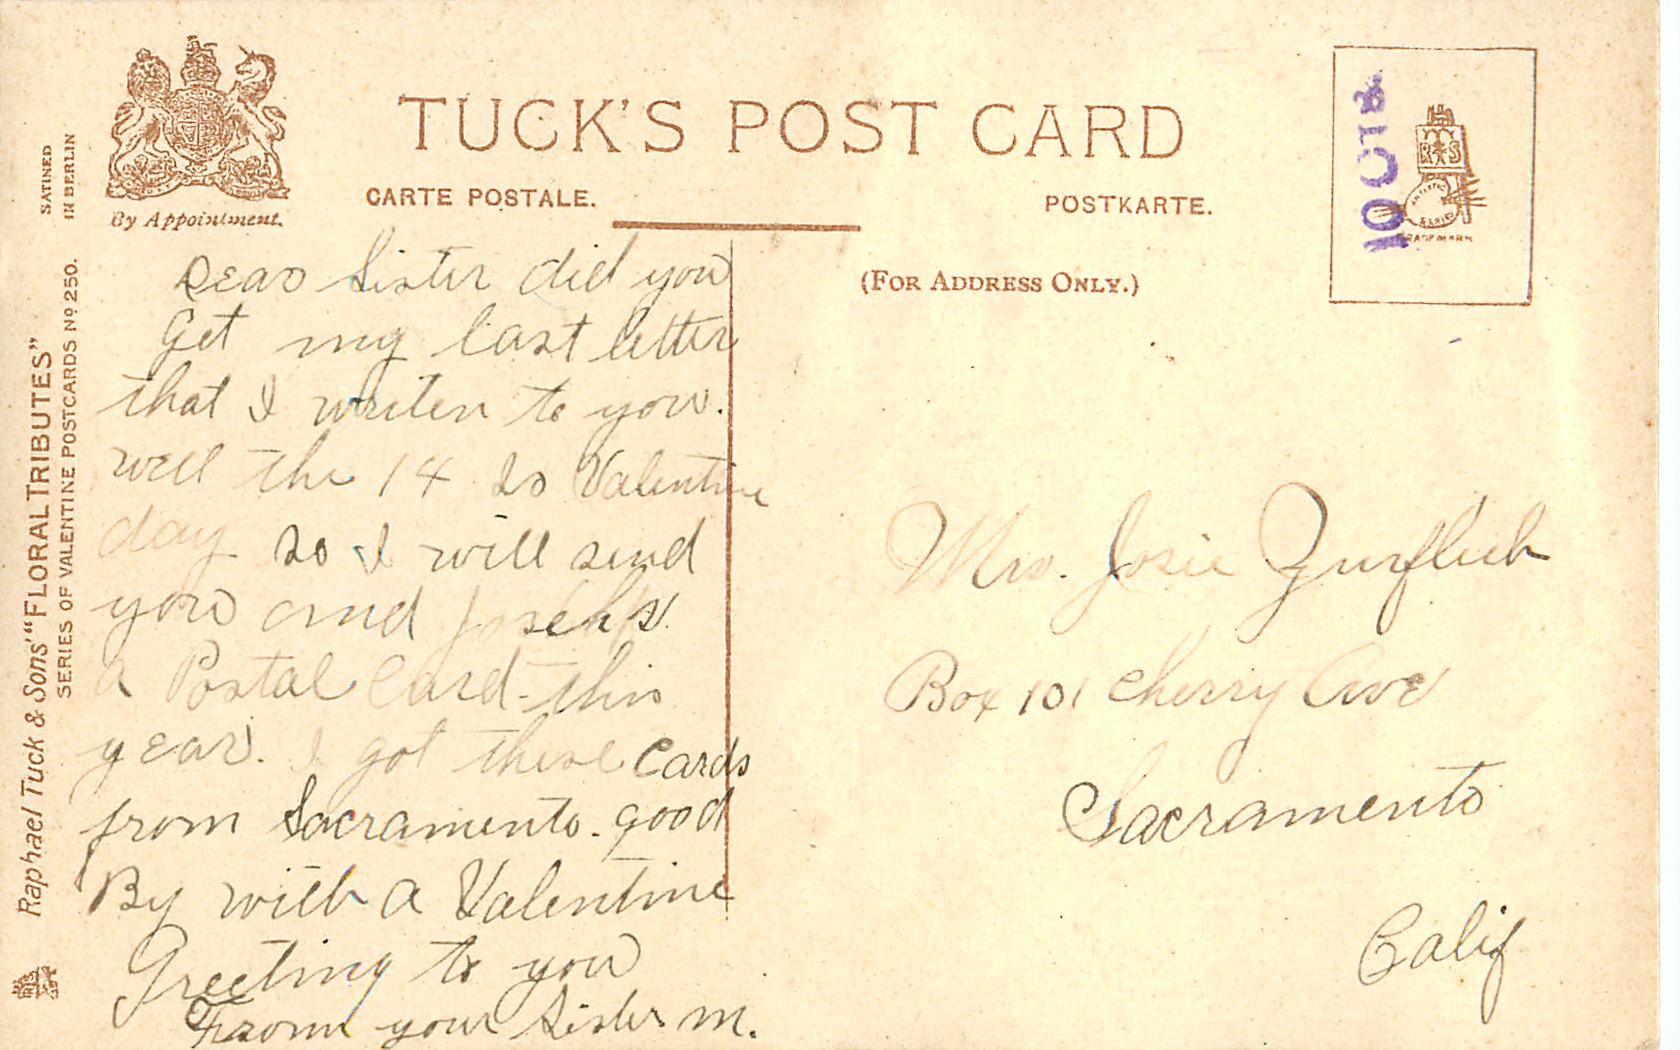 TUCK'S POST CARD
CARTE POSTALE.
POSTKARTE.
By Appointment.
(FOR ADDRESS ONLY.)
SATINED
IN BERLIN
Raphael Tuck & Sons' "FLORAL TRIBUTES"
SERIES OF VALENTINE POSTCARDS No 250.
10 CTS
R S
ARTISTIC
SERIES
TRADE MARK
Dear Sister did you
Get my last letter
that I writen to you.
well the 14 is Valentine
day so I will send
you and
a Postal Card this
year. I got these Cards
from Sacramento. good
By with a Valentine
Greeting to you
From your Sister M.
Mrs. Josie Zurflueh
Box 101 Cherry Ave
Sacramento
Calif